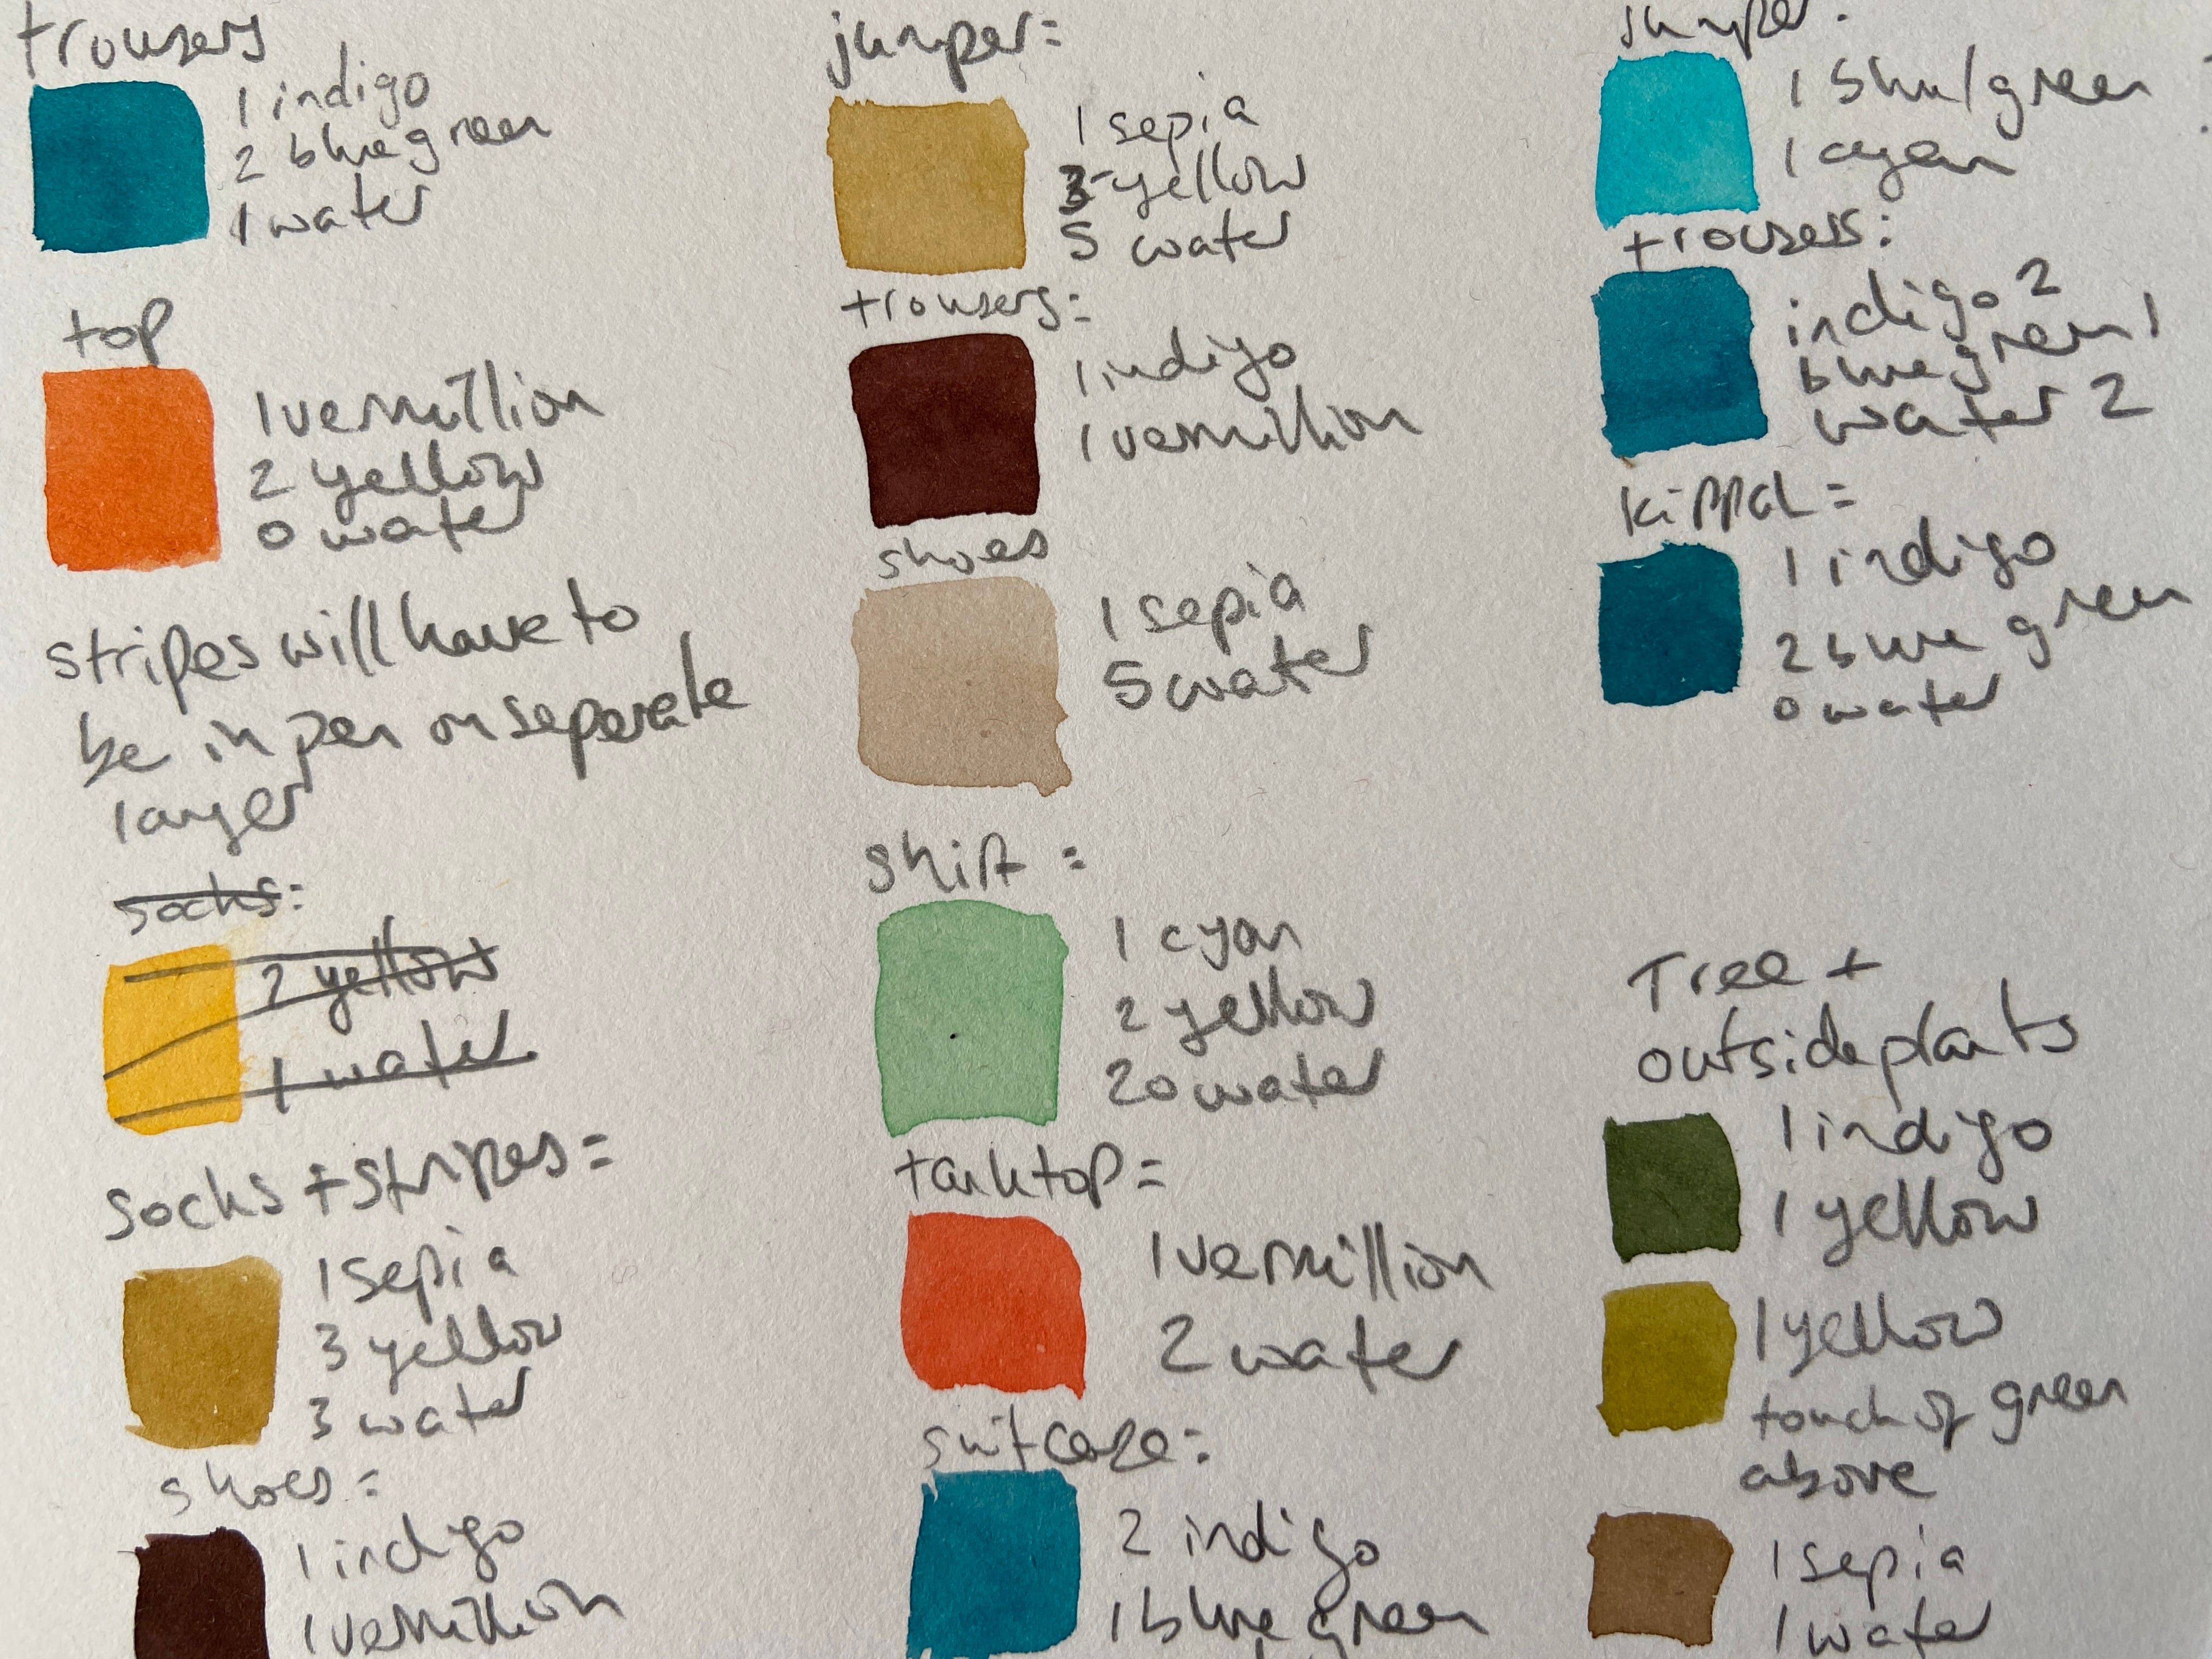 trousers
1 indigo
2 bluegreen
1 water
top
1 vermillion
2 yellow
0 water
stripes will have to
be in pen on seperate
layer
socks:
2 yellow
1 water
socks + stripes =
1 sepia
3 yellow
3 water
shoes =
1 indigo
1 vermillion
jumper:
1 sepia
3 yellow
5 water
trousers:
1 indigo
1 vermillion
shoes
1 sepia
5 water
shirt =
1 cyan
2 yellow
20 water
tanktop =
1 vermillion
2 water
suitcase:
2 indigo
1 blue green
jumper:
1 blue/green
1 cyan
trousers:
indigo 2
bluegreen 1
water 2
kippah =
1 indigo
2 blue green
0 water
Tree +
outside plants
1 indigo
1 yellow
1 yellow
touch of green
above
1 sepia
1 water